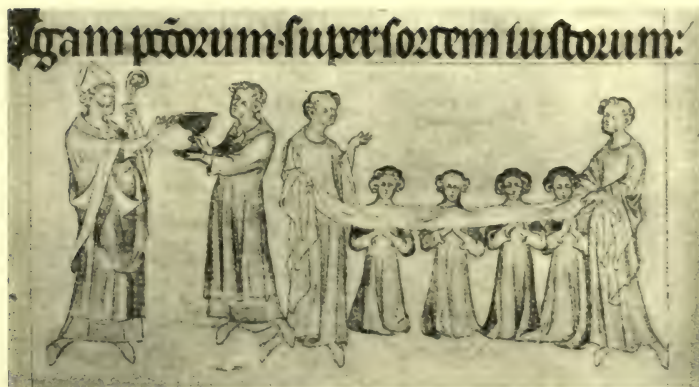 gam pct̄orum·super sortem iustorum: